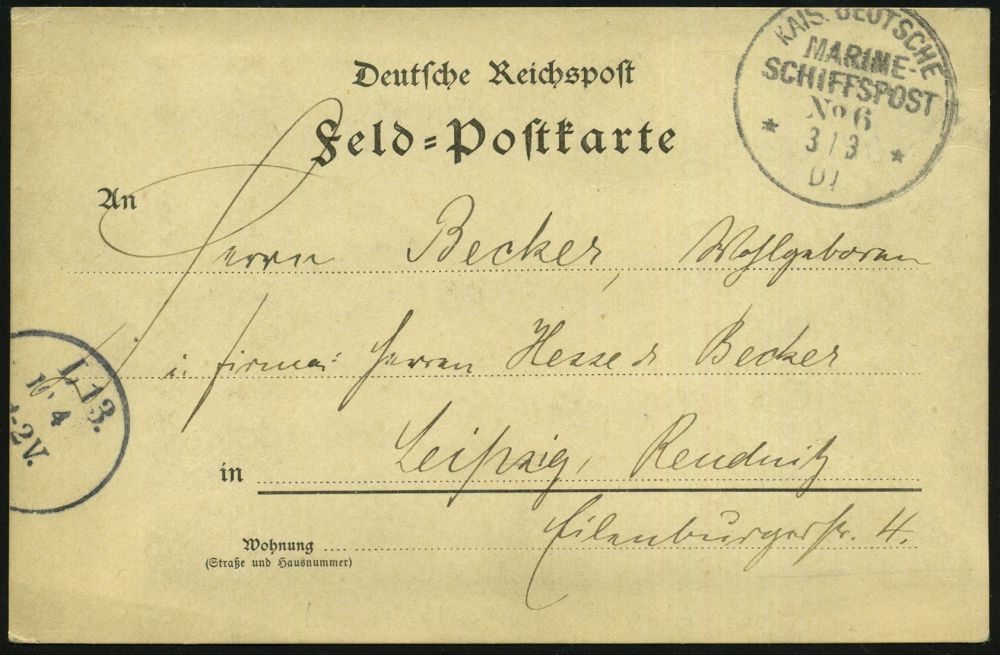 Deutsche Reichspost
Feld-Postkarte
KAIS. DEUTSCHE
MARINE-
SCHIFFSPOST
No 6
3/3
01
An
Herrn Becker, Wohlgeboren
i. Firma: Herren Hesse & Becker
L 13.
10 4
-2V.
in Leipzig, Reudnitz
Eilenburgerstr. 4.
Wohnung
(Straße und Hausnummer)